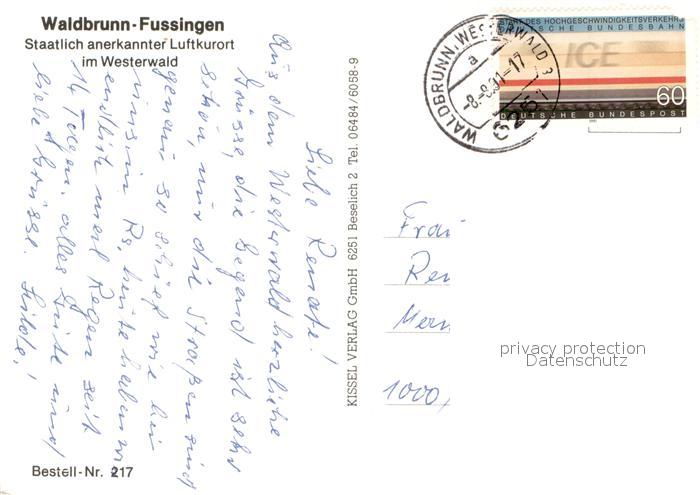 Waldbrunn-Fussingen
Staatlich anerkannter Luftkurort
im Westerwald
Liebe Renate!
Aus dem Westerwald herzliche
Grüsse, die Gegend ist sehr
schön, nur die Straßen sind
genau so schief wie bei
uns in Rs, heute haben wir
endlich mal Regen seit
14 Tagen. alles Gute und
liebe Grüsse.
Bestell-Nr. 217
KISSEL VERLAG GmbH 6251 Beselich 2 Tel. 06484/6058-9
START DES HOCHGESCHWINDIGKEITSVERKEHRS
DEUTSCHE BUNDESBAHN
ICE
60
DEUTSCHE BUNDESPOST
WALDBRUNN, WESTERWALD 3
a
-8.-8.91-17
6251
Frau
Ren
Mern
1000
privacy protection
Datenschutz